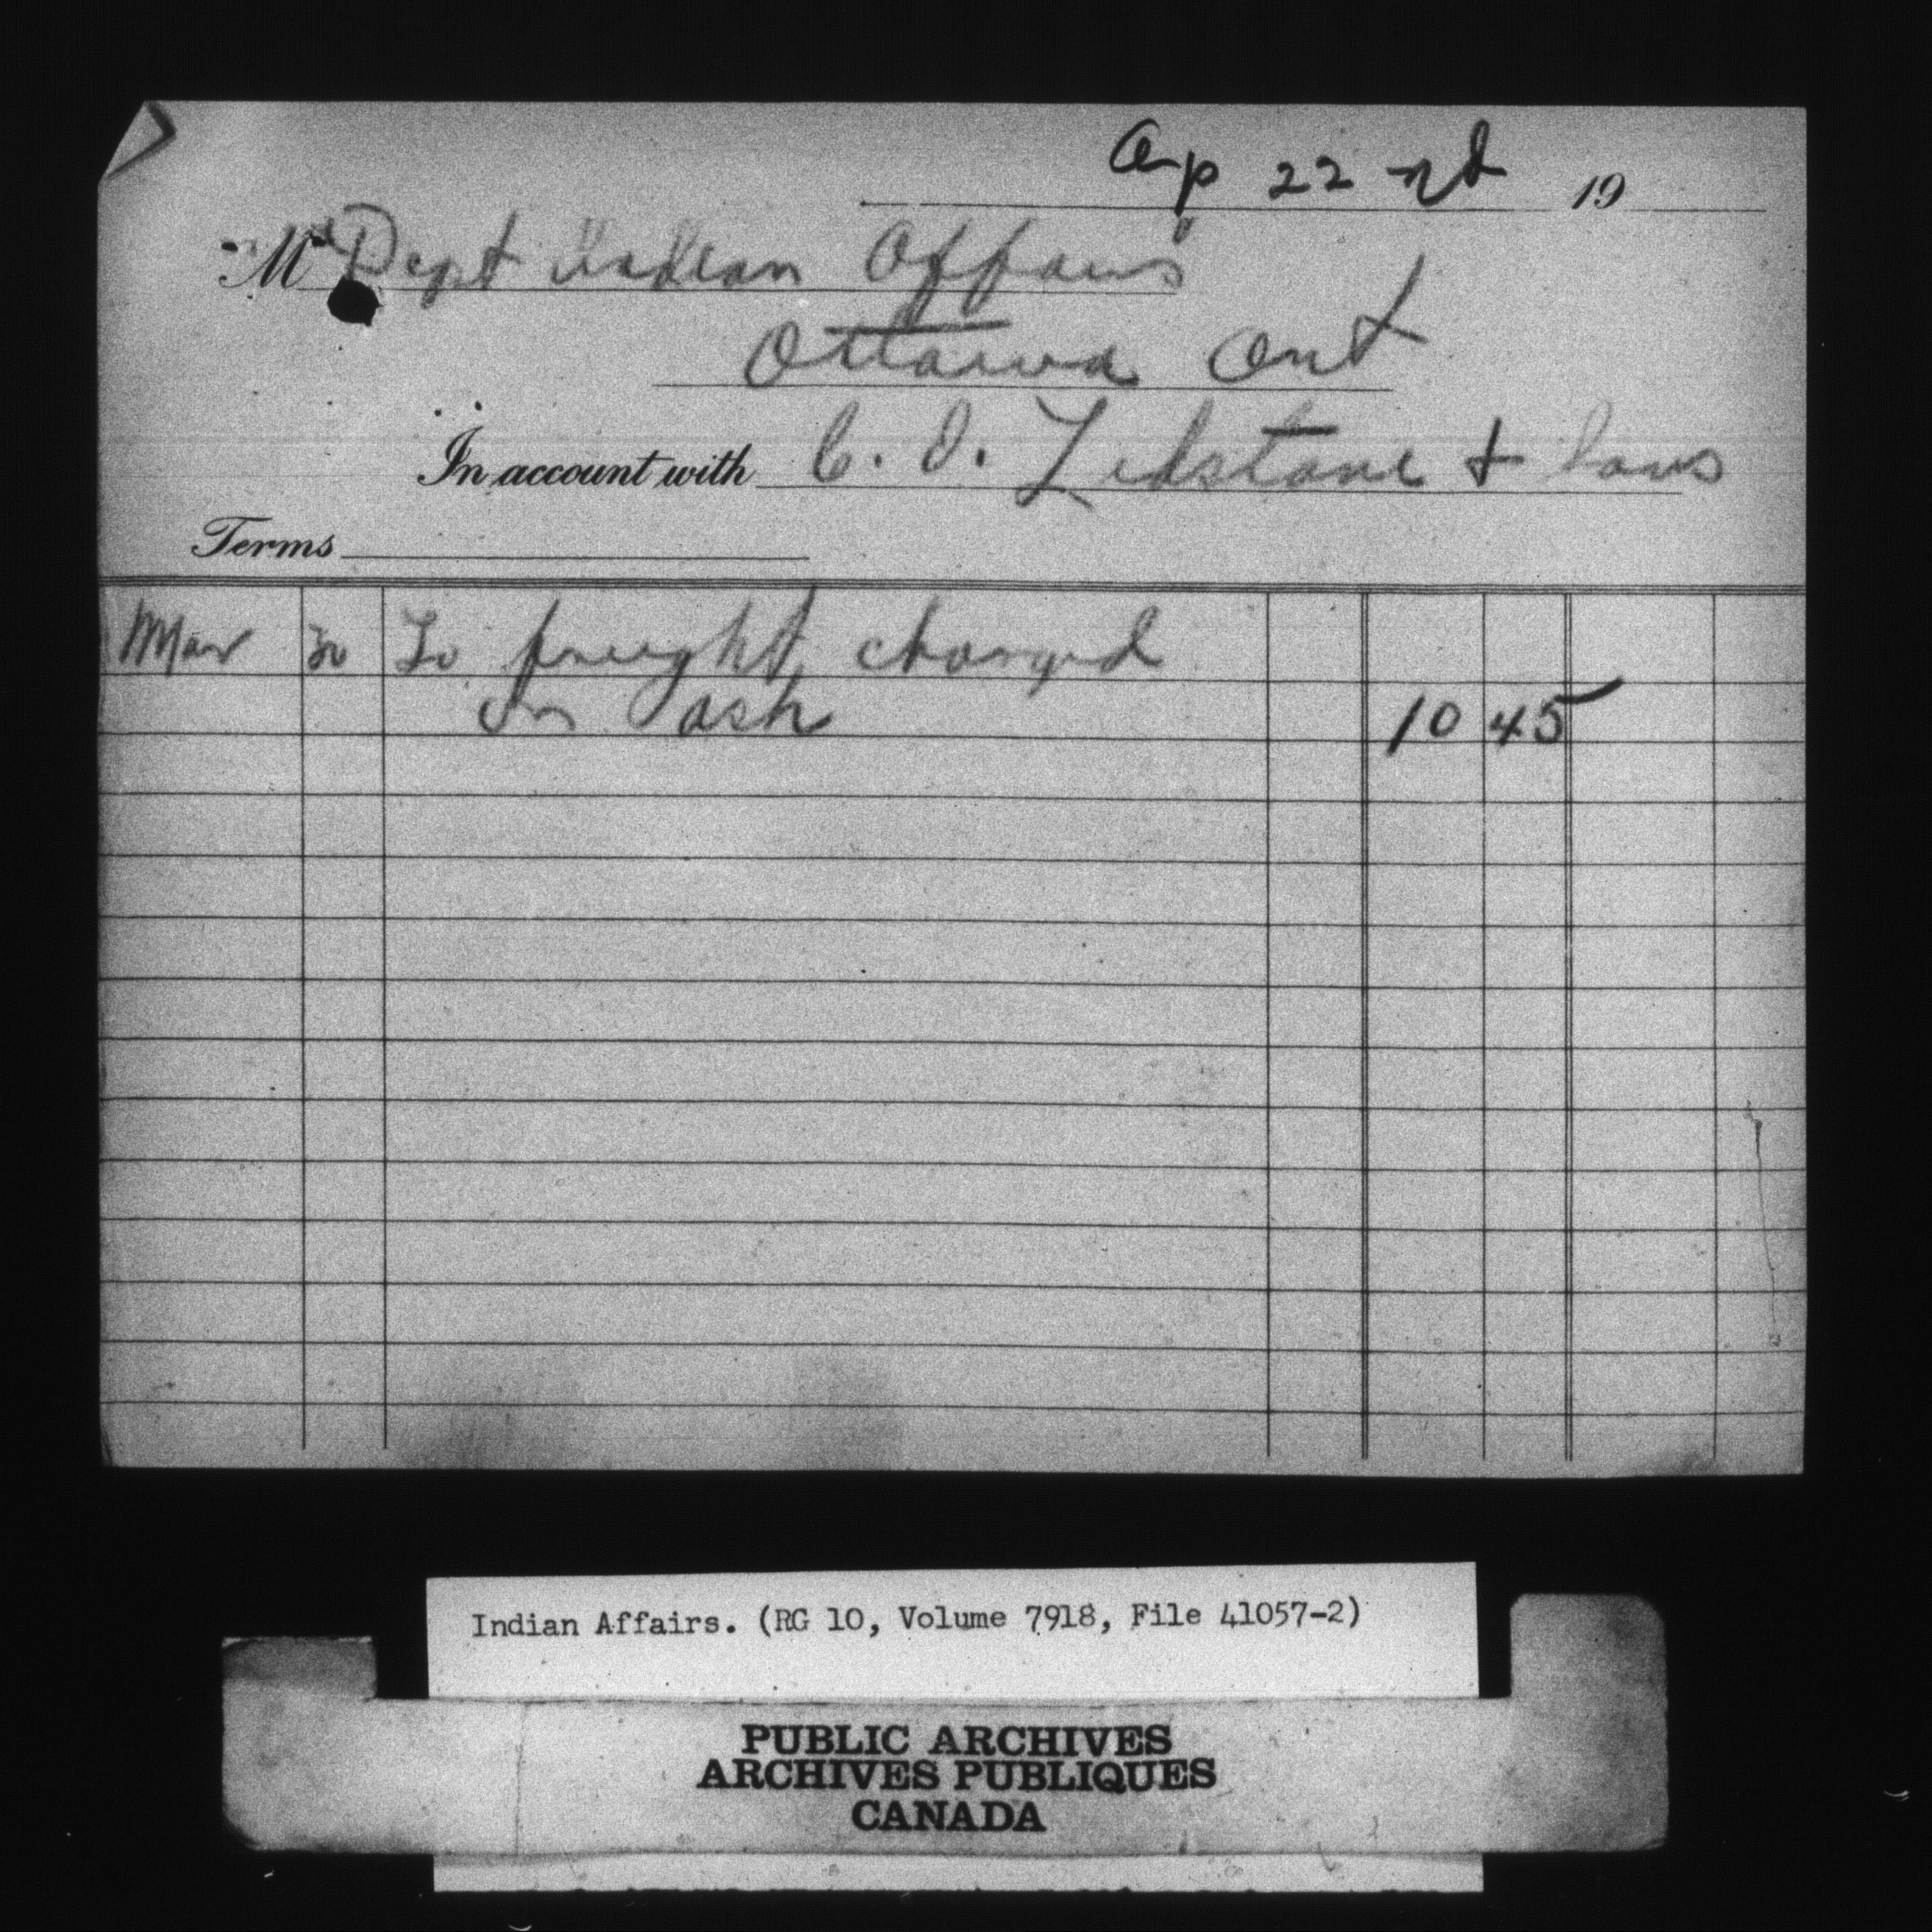 Ap 22nd 19
M Dept Indian Affairs
Ottawa Ont
In account with C. J. Zidstone & Sons
Terms
Mar 30 To freight charged
on Sash 10 45
Indian Affairs. (RG 10, Volume 7918, File 41057-2)
PUBLIC ARCHIVES
ARCHIVES PUBLIQUES
CANADA